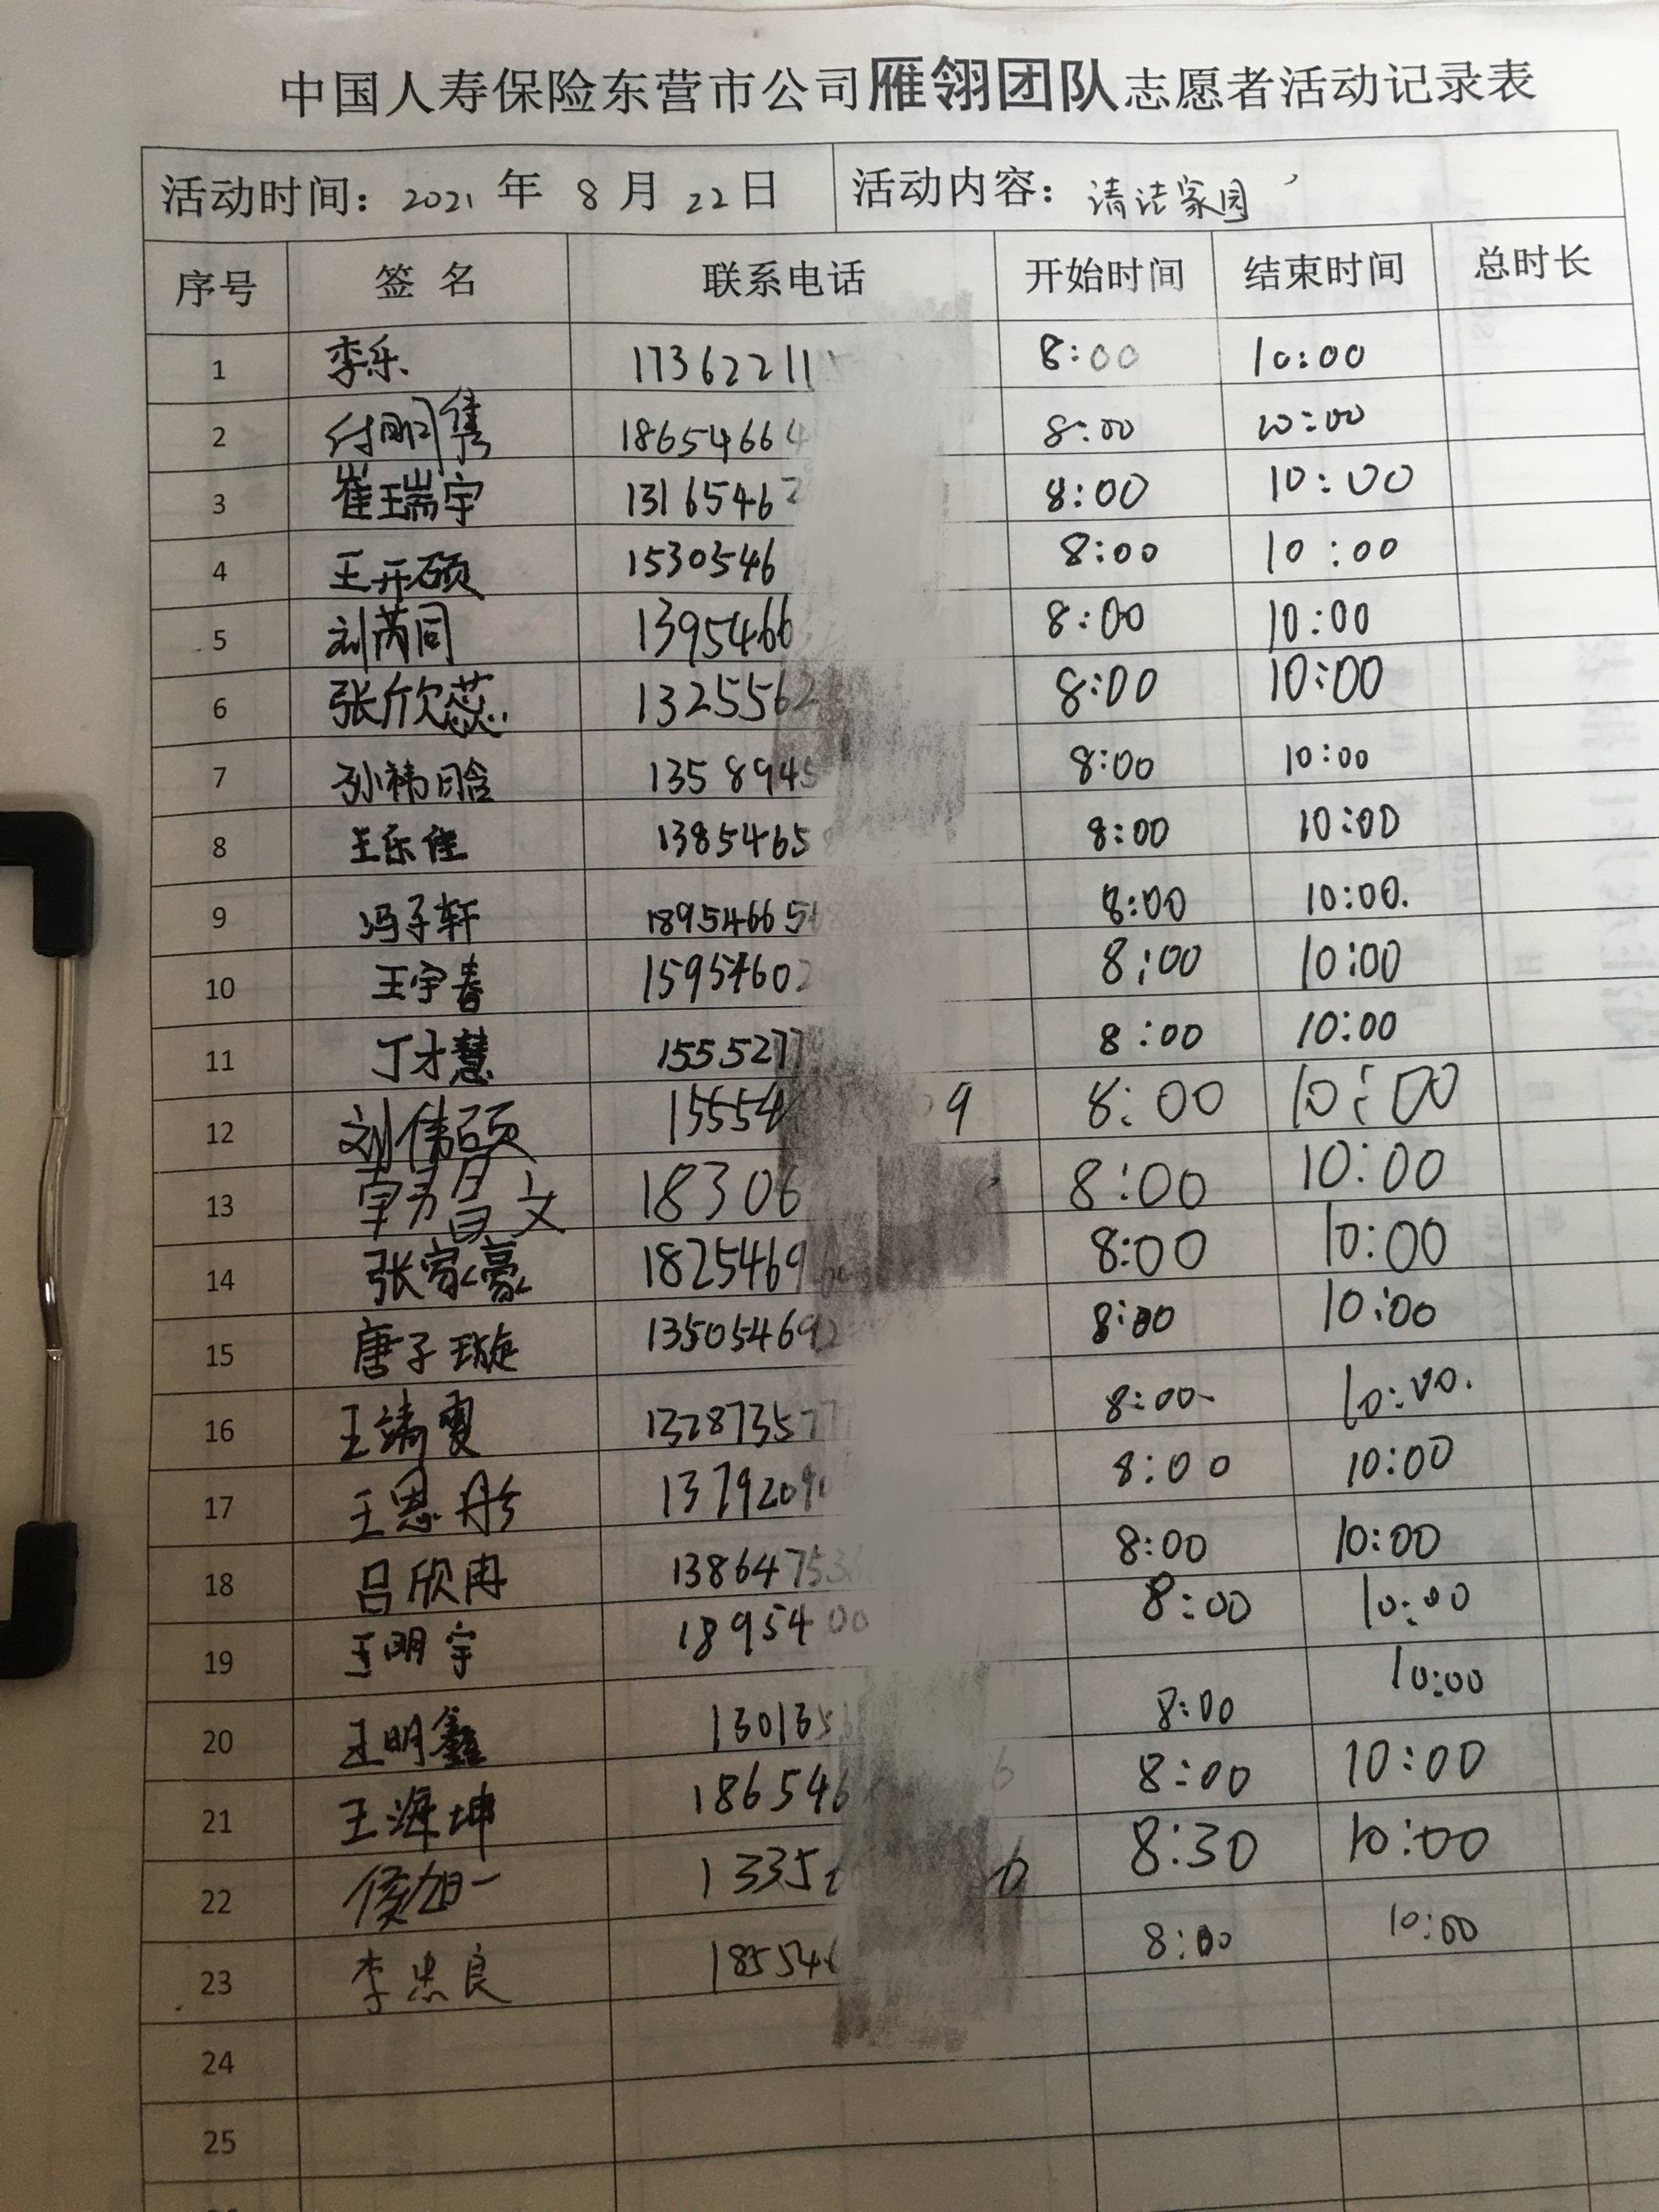 中国人寿保险东营市公司雁翎团队志愿者活动记录表
活动时间：2021 年 8 月 22 日 活动内容：清洁家园
序号 签名 联系电话 开始时间 结束时间 总时长
1 李乐 17362211 8:00 10:00
2 18654664 8:00 10:00
3 崔瑞宇 1316546 8:00 10:00
4 王开硕 1530546 8:00 10:00
5 刘芮同 1395466 8:00 10:00
6 张欣蕊 1325562 8:00 10:00
7 孙祎晗 1358945 8:00 10:00
8 王乐佳 13854658 8:00 10:00
9 冯子轩 189546656 8:00 10:00.
10 王宇春 15954602 8:00 10:00
11 丁才慧 1555277 8:00 10:00
12 刘伟硕 15554 9 8:00 10:00
13 18306 8:00 10:00
14 张家豪 18254696 8:00 10:00
15 唐子璇 135054692 8:00 10:00
16 王靖雯 132873577 8:00 10:00.
17 王恩彤 1379209 8:00 10:00
18 吕欣冉 13864753 8:00 10:00
19 王明宇 1895400 8:00 10:00
20 王明鑫 130135 8:00 10:00
21 王海坤 186546 6 8:00 10:00
22 侯旭一 1335 6 8:30 10:00
23 李忠良 185546 8:00 10:00
24
25